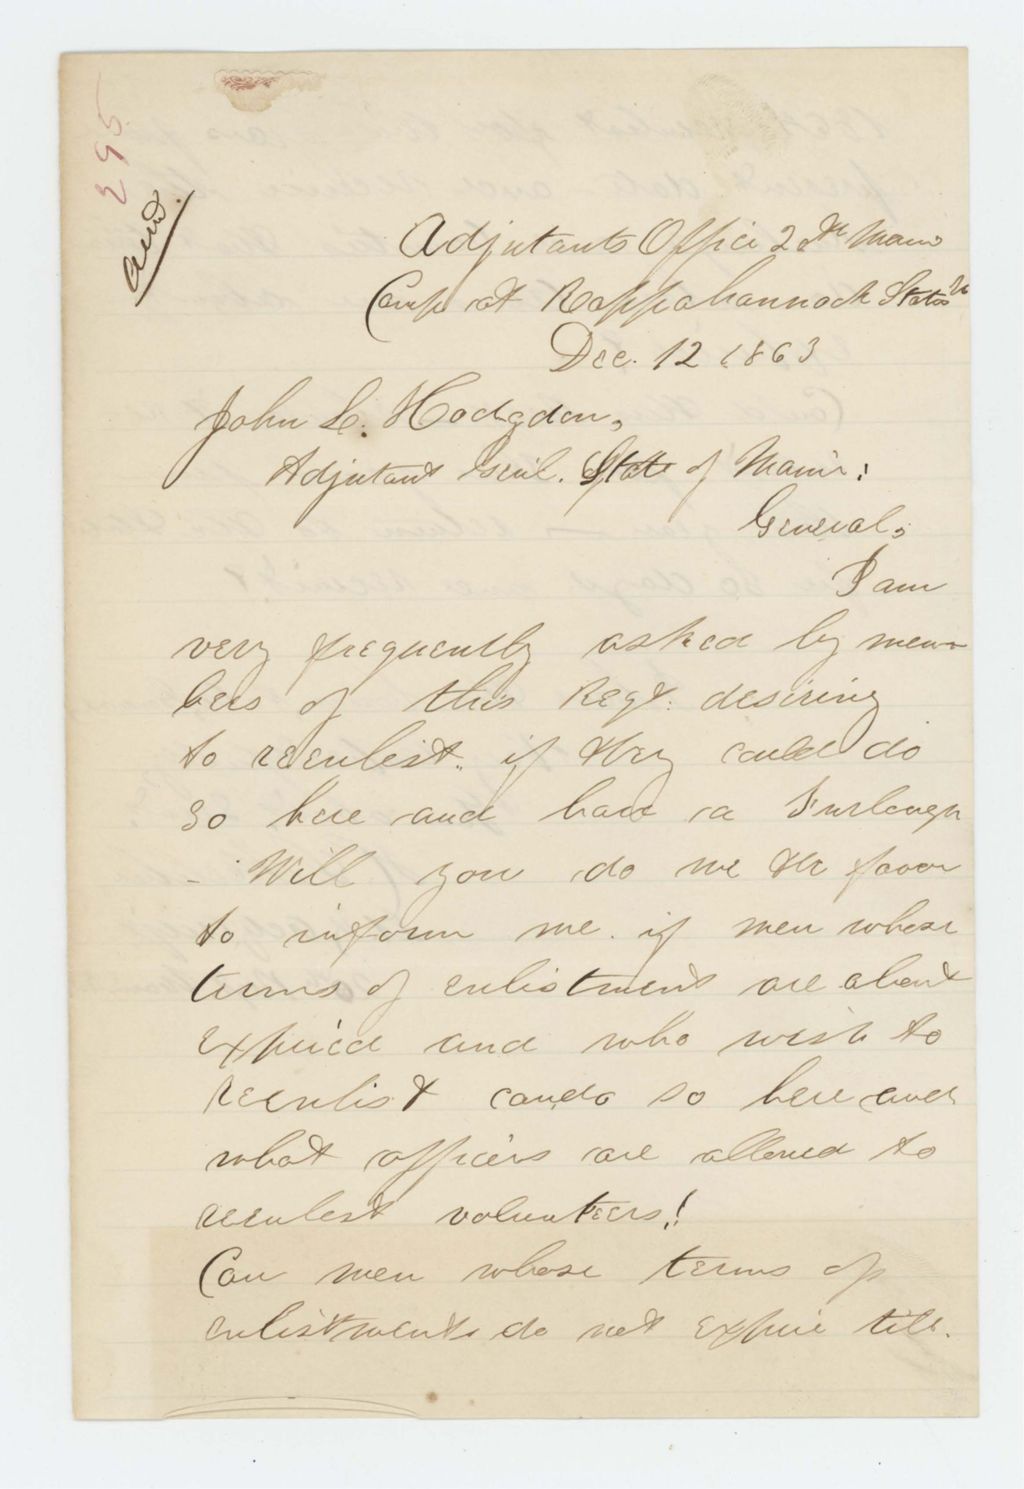 295
and.
Adjutants Office 20th Maine
Camp at Rappahannock Station Va
Dec. 12 1863
John L. Hodgdon,
Adjutant Genl. State of Maine:
General,
I am
very frequently asked by mem-
bers of this Regt. desiring
to reenlist. if they could do
so here and have a Furlough
- Will you do me the favor
to inform me. if men whose
terms of enlistment are about
expired and who wish to
reenlist can do so here and
what officers are allowed to
reenlist volunteers!
Can men whose terms of
enlistments do not expire till.